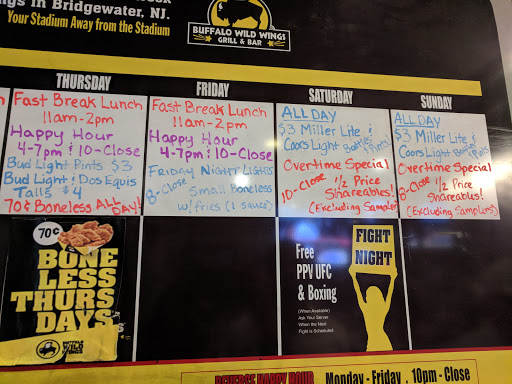 ngs in Bridgewater, NJ.
Your Stadium Away from the Stadium
BUFFALO WILD WINGS
GRILL & BAR
THURSDAY
Fast Break Lunch
11am-2pm
Happy Hour
4-7pm & 10-Close
Bud Light Pints $3
Bud Light & Dos Equis
Talls $4
70¢ Boneless ALL DAY!
FRIDAY
Fast Break Lunch
11am-2pm
Happy Hour
4-7pm & 10-Close
FRIDAY NIGHT LIGHTS
8-Close Small Boneless
w/fries (1 sauce)
SATURDAY
ALL DAY
$3 Miller Lite &
Coors Light Bottles
Overtime Special
10-Close 1/2 Price
Shareables!
(Excluding Sampler)
SUNDAY
ALL DAY
$3 Miller Lite &
Coors Light
Overtime Special
1/2 Price
Shareables!
(Excluding Samplers)
70¢
BONE
LESS
THURS
DAYS
BUFFALO
WILD
WINGS
Free
PPV UFC
& Boxing
(When Available)
Ask Your Server
When the Next
Fight is Scheduled
FIGHT
NIGHT
REVERSE HAPPY HOUR Monday - Friday . 10pm - Close